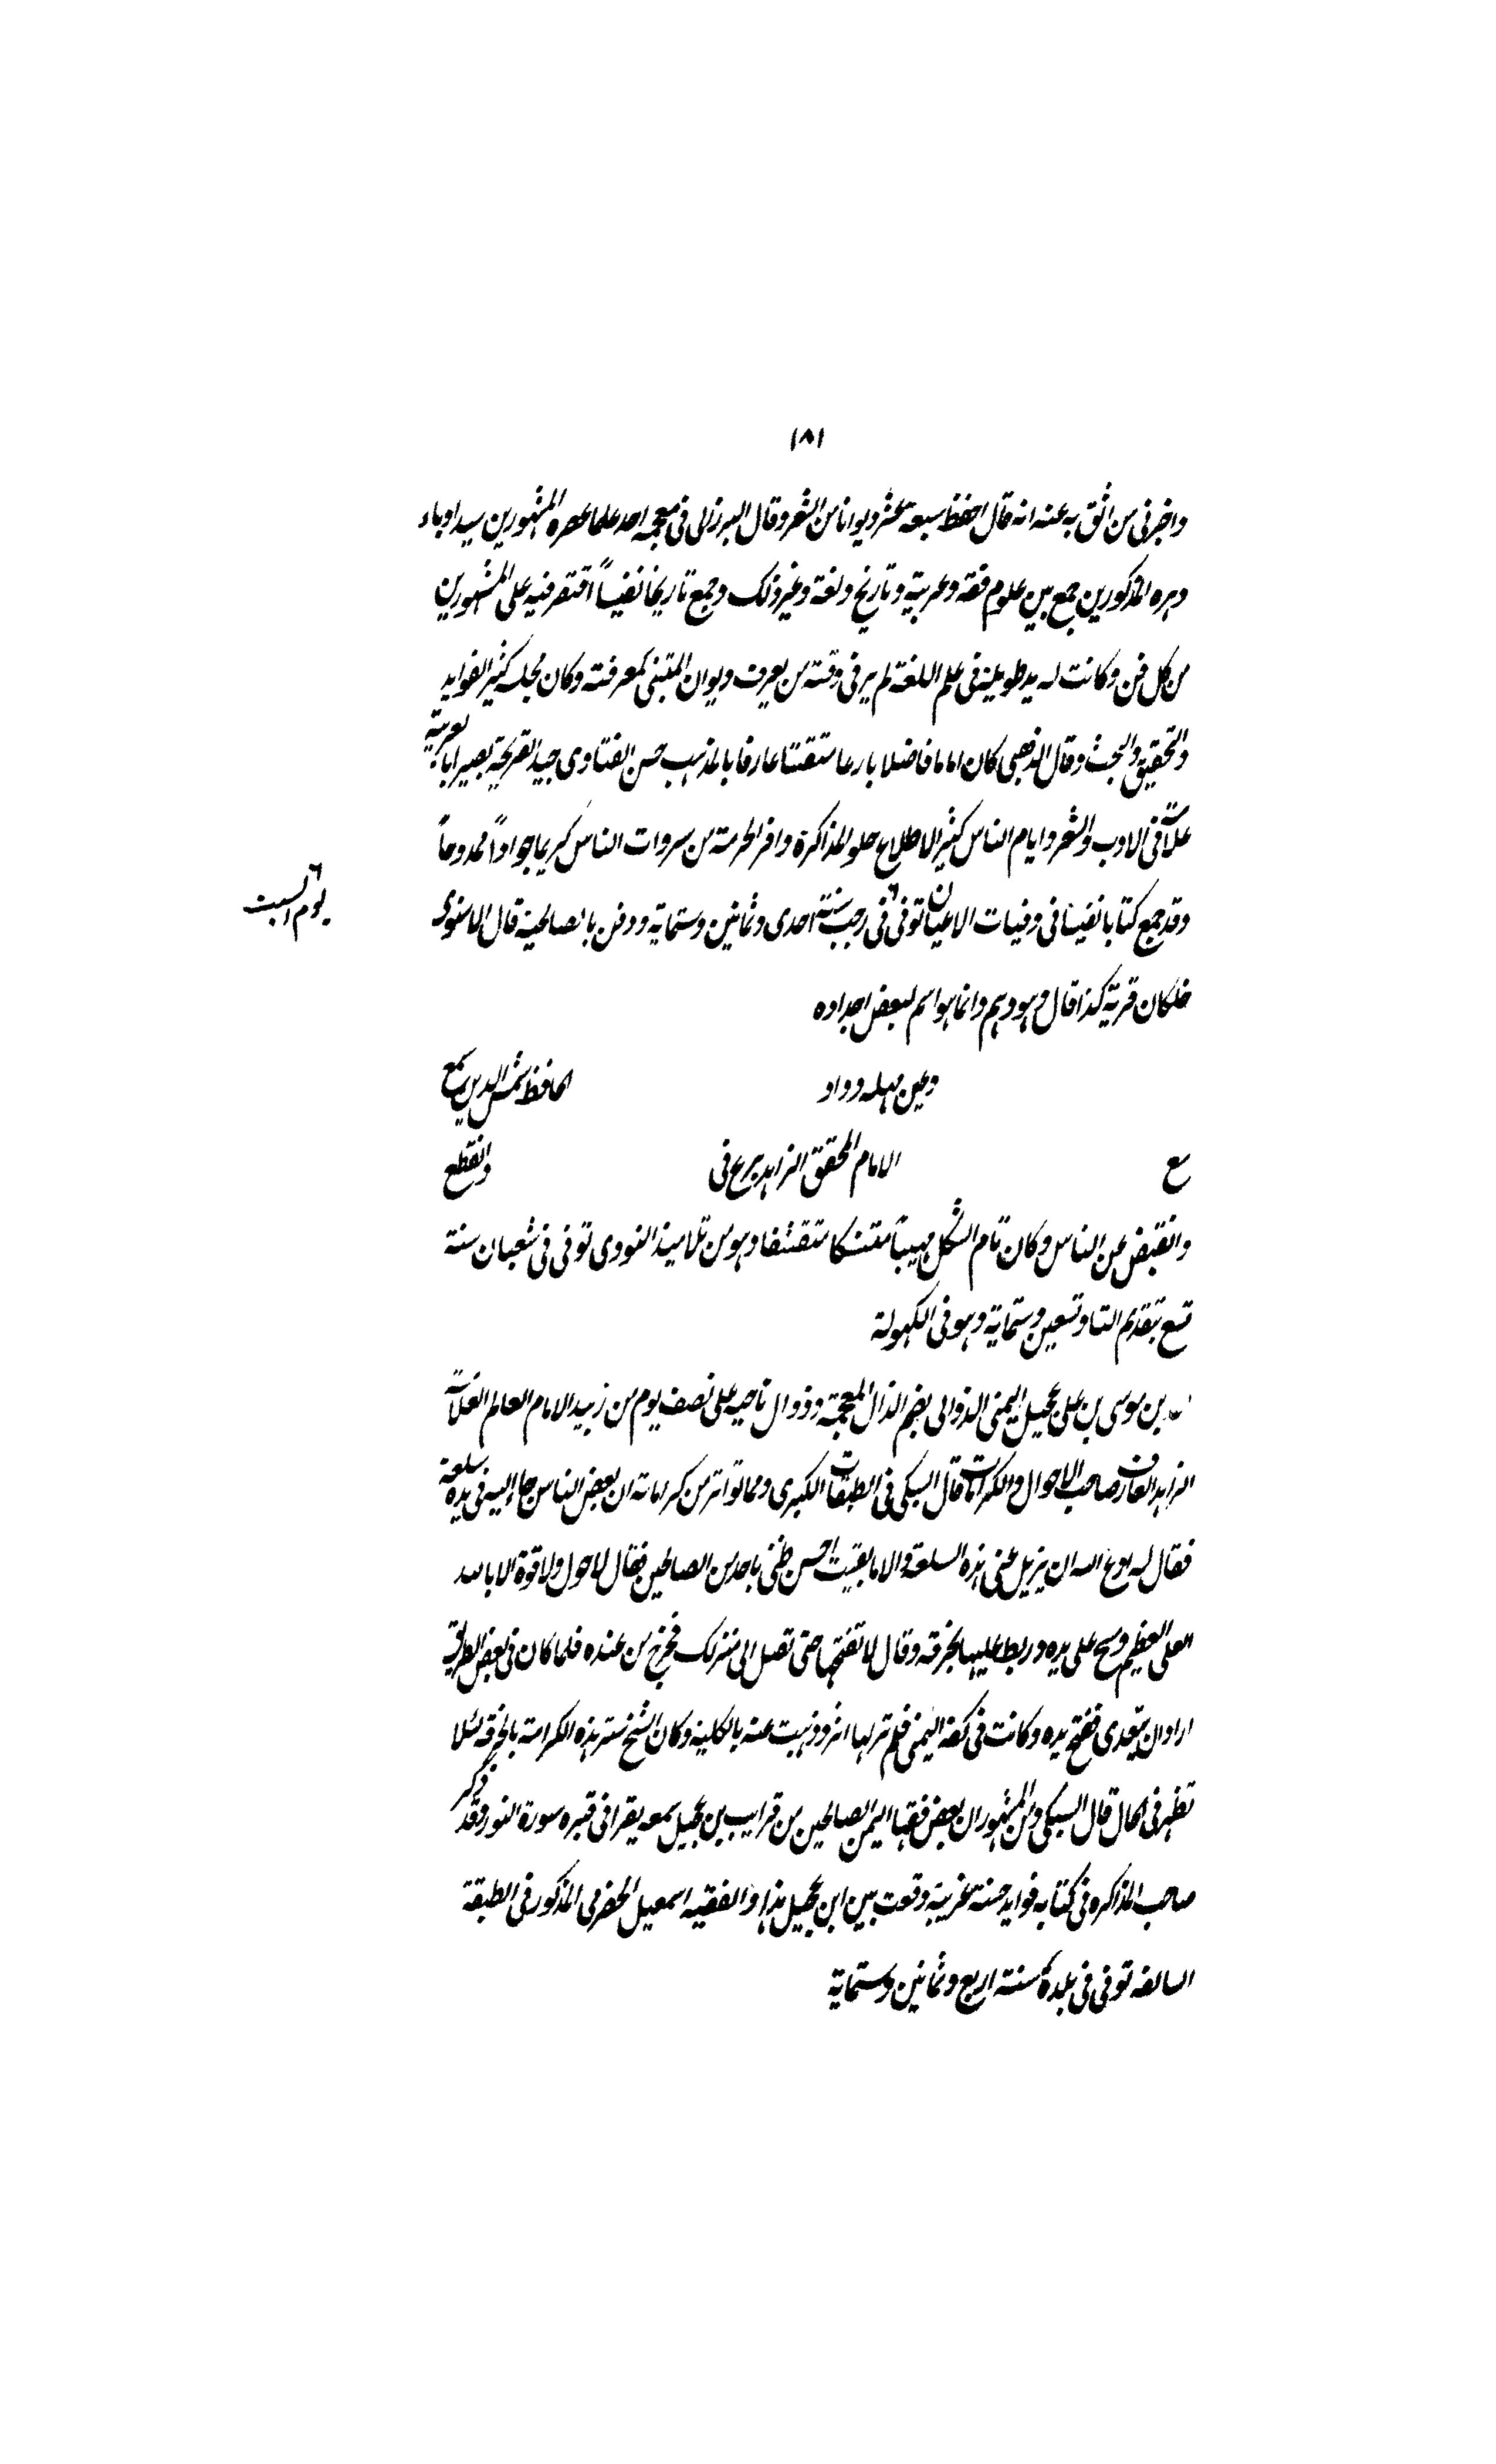 ١٨١
واخبرنى من اثق به عنه انه قال احفظ سبعة عشر ديوانا من الشعر وقال البرزالى فى معجمه احد علما عصره المشهورين سيد ادباء
دهره المذكورين جمع بين علوم فقه وعربية وتاريخ ولغة وغير ذلك وجمع تاريخا نفيساً اقتصر فيه على المشهورين
من كل فن وكانت له يد طويلة فى علم اللغة لم ير فى وقته من يعرف ديوان المتنبى كمعرفته وكان مجلسه كثير الفوايد
والتحقيق والبحث وقال الذهبى كان اماما فاضلا بارعا متقنا عارفا بالمذهب حسن الفتاوى جيد القريحة بصيرا بالعربية
علامة فى الادب والشعر وايام الناس كثير الاطلاع حلو المذاكرة وافر الحرمة من سروات الناس كريما جواداً ممدوحاً
وقد جمع كتابا نفيسا فى وفيات الاعيان توفى فى رجب سنة احدى وثمانين وستماية ودفن بالصالحية قال الاسنوى
يوم السبت
خلكان قرية كذا قال وهو وهم وانما هو اسم لبعض اجداده
وعين مهملة وواو الحافظ شمس الدين سمع
الامام المحقق الزاهد برع فى وانقطع
وانقبض عن الناس وكان تام الشكل مهيباً متنسكا متقشفا وهو من تلاميذ النووى توفى فى شعبان سنة
تسع بتقديم التا وتسعين وستماية وهو فى الكهولة
بن موسى بن على عجيل اليمنى الذوالى بضم الذال المعجمة وذوال ناحيه على نصف يوم من زبيد الامام العالم العلامة
الزاهد العارف صاحب الاحوال والكرامات قال السبكى فى الطبقات الكبرى ومما تواتر من كراماته ان بعض الناس جاء اليه فى يده سلعة
فقال له ادع الله ان يزيل عنى هذه السلعة والا ما بقيت احسن ظنى باحد من الصالحين فقال لا حول ولا قوة الا بالله
العلى العظيم ومسح على يده وربط عليها بخرقه وقال لا تفتحها حتى تصل الى منزلك فخرج من عنده فلما كان فى بعض الطريق
اراد ان يتغدى ففتح يده وكانت فى كفه اليمنى فلم تر لها اثر وذهبت عنه بالكلية وكان الشيخ ستر هذه الكرامة بالخرقه لئلا
تظهر فى الحال قال السبكى ومن المشهور ان بعض فقها اليمن الصالحين من قرايب بن عجيل سمعه يقرا فى قبره سورة النور وقد ذكر
صاحب المذاكره فى كتابه فوايد حسنة غريبة وقعت بين ابن عجيل هذا والفقيه اسمعيل الحضرمى المذكور فى الطبقة
السالفه توفى فى بلده سنة اربع وثمانين وستماية